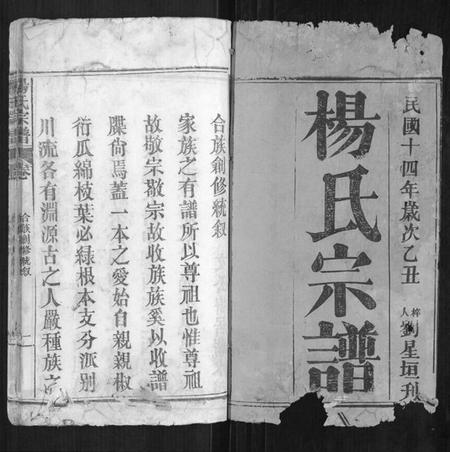 民國十四年歲次乙丑
梓人劉星垣刊
楊氏宗譜
合族創修統叙
家族之有譜所以尊祖也惟尊祖
故敬宗敬宗故收族族奚以收譜
牒尙焉蓋一本之愛始自親親椒
衍瓜綿枝葉必緑根本支分派別
川流各有淵源古之人嚴種族之
楊氏宗譜
卷
合族創修統叙
二